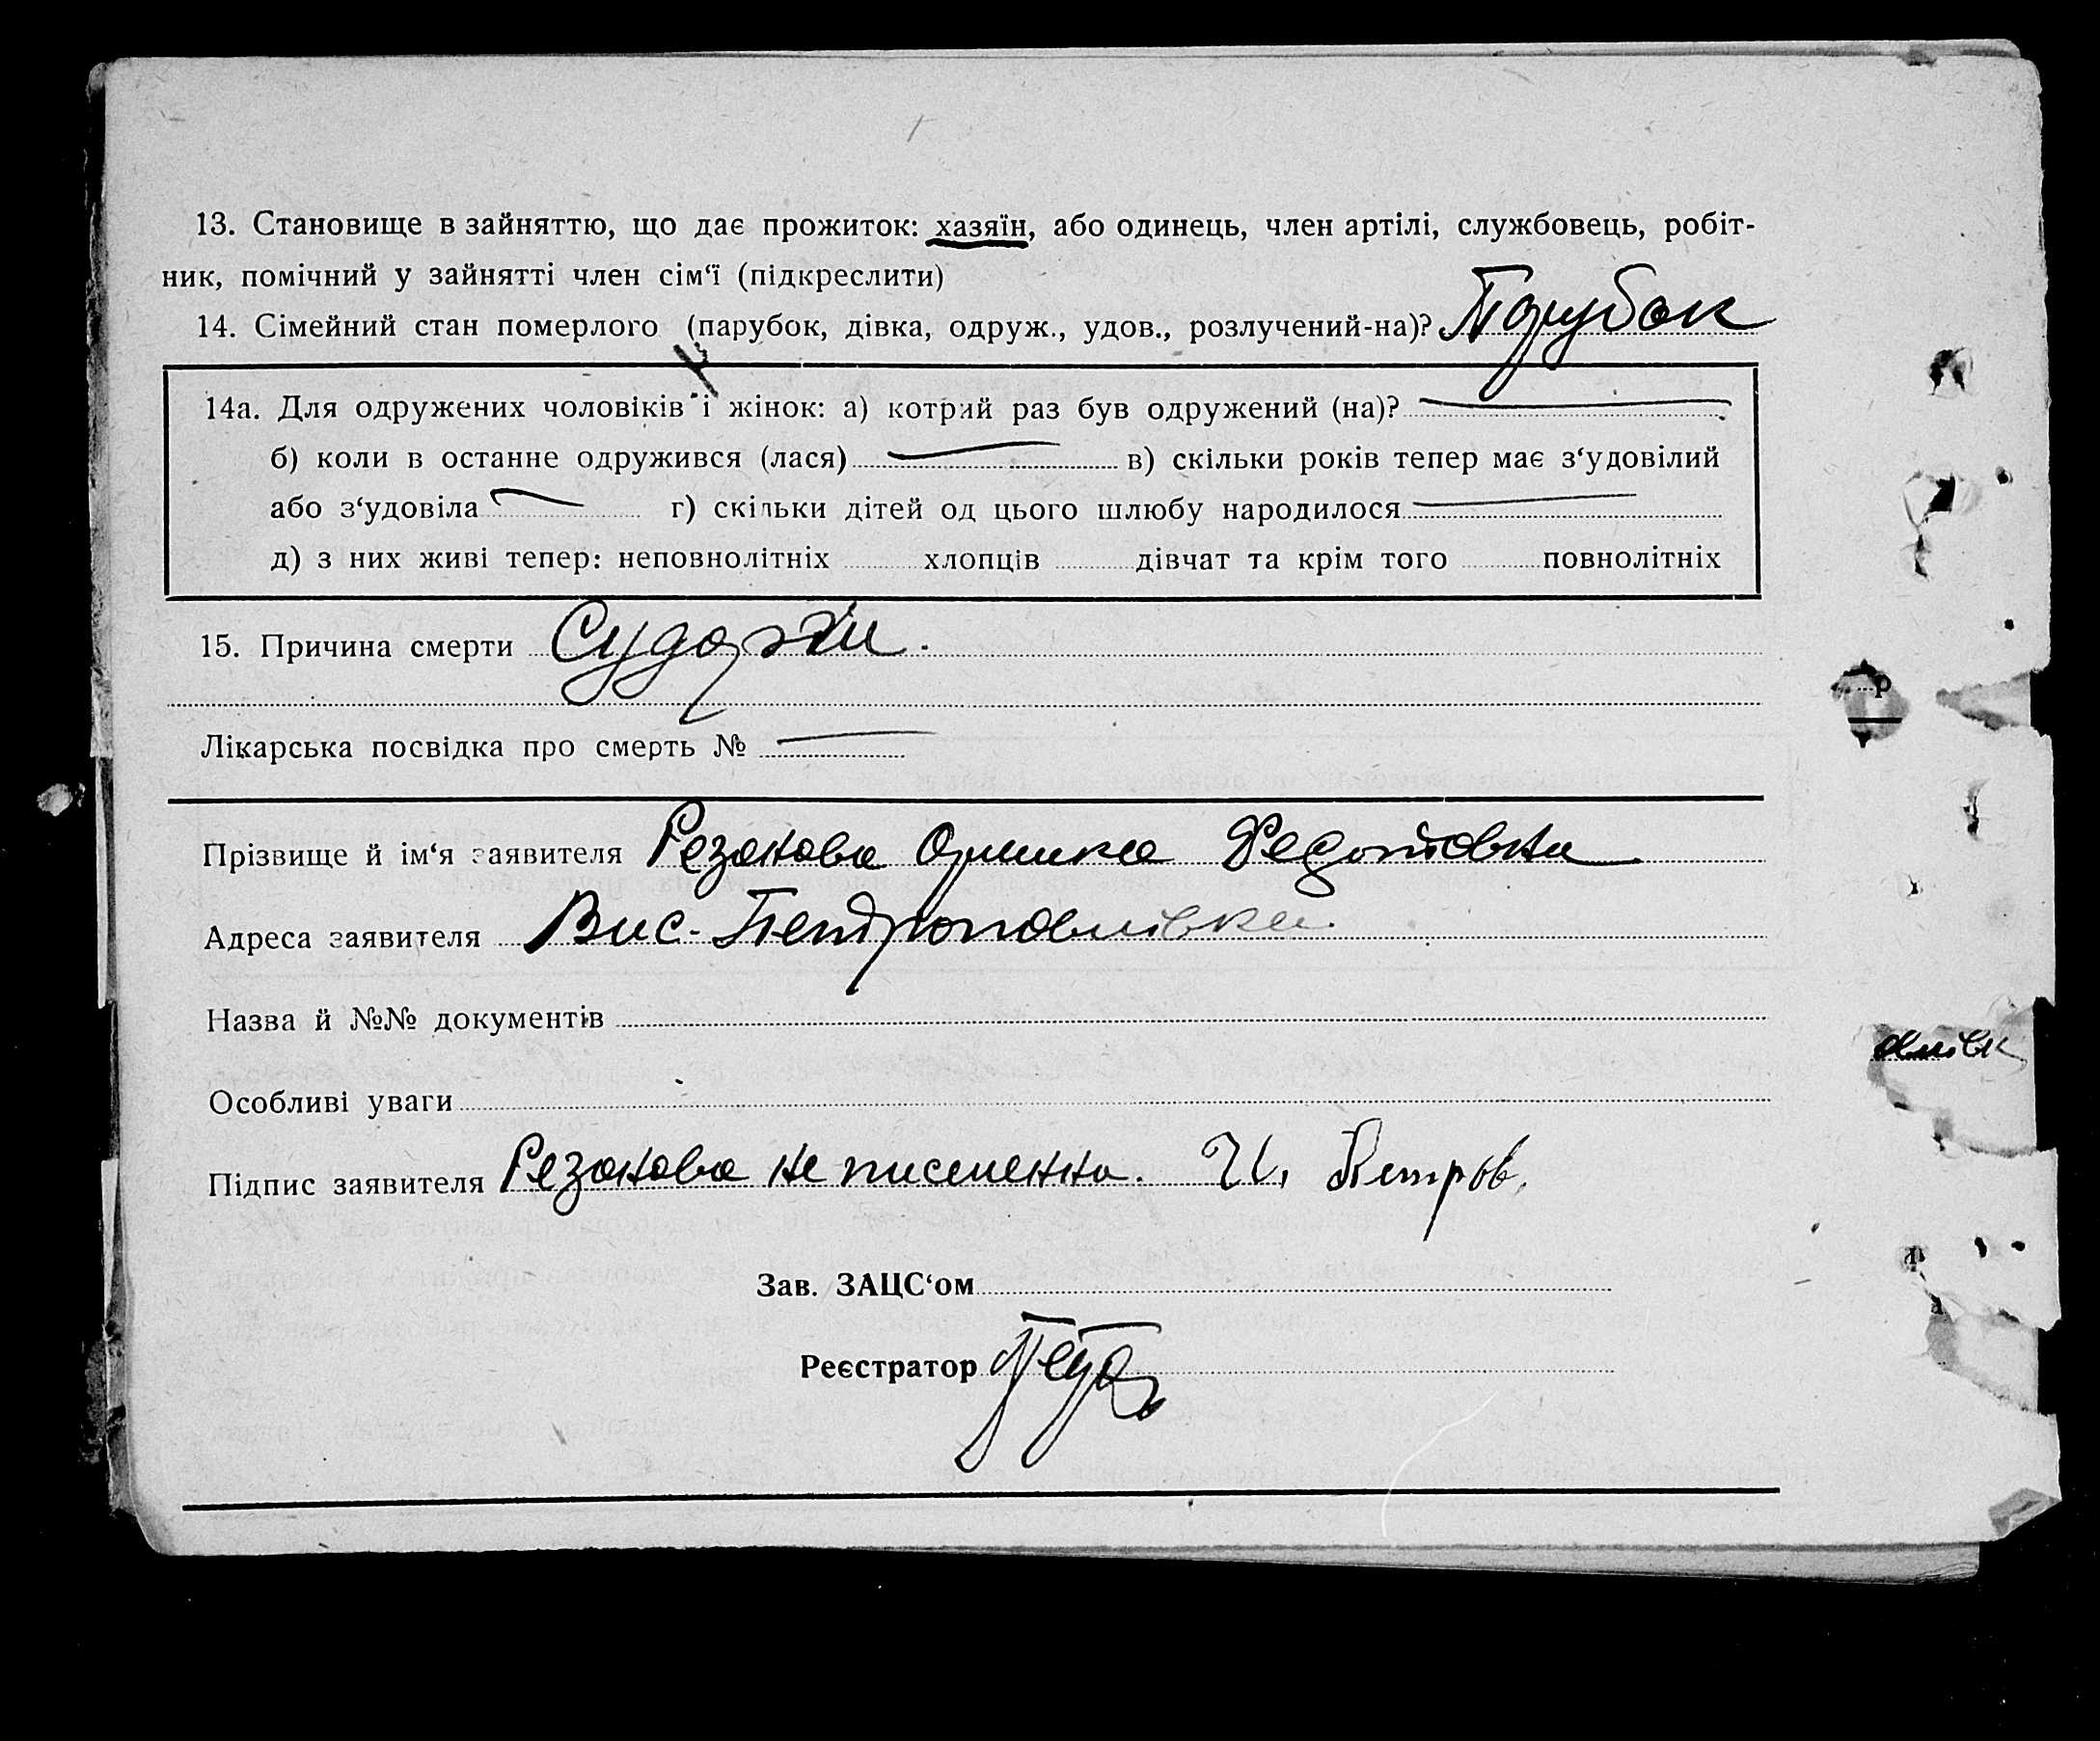 13. Становище в зайняттю, що дає прожиток: хазяїн, або одинець, член артілі, службовець, робіт-
ник, помічний у зайнятті член сім‘ї (підкреслити)
14. Сімейний стан померлого (парубок, дівка, одруж., удов., розлучений-на)? Парубок
14а. Для одружених чоловіків і жінок: а) котрий раз був одружений (на)?
б) коли в останне одружився (лася) в) скільки років тепер має з‘удовілий
або з‘удовіла г) скільки дітей од цього шлюбу народилося
д) з них живі тепер: неповнолітніх хлопців дівчат та крім того повнолітніх
15. Причина смерти Судорги.
Лікарська посвідка про смерть №
р
Прізвище й ім‘я заявителя Резанова Оришка Федотовна
Адреса заявителя Вис-Петропавлівка
Назва й №№ документів
авлівк
Особливі уваги
Підпис заявителя Резанова не писменна. И. Петров.
Зав. ЗАЦС‘ом
Реєстратор